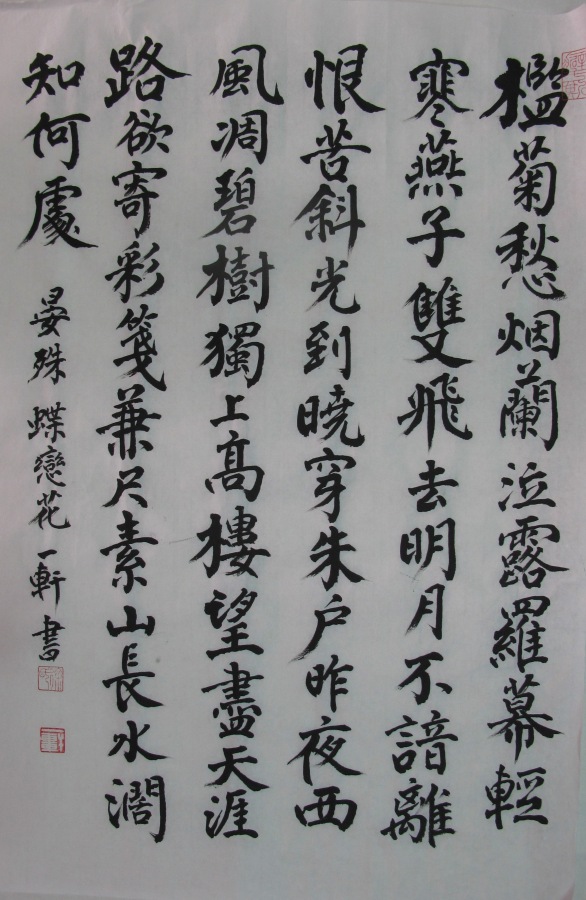 檻菊愁烟蘭泣露羅幕輕
寒燕子雙飛去明月不諳離
恨苦斜光到曉穿朱户昨夜西
風凋碧樹獨上高樓望盡天涯
路欲寄彩箋兼尺素山長水濶
知何處
晏殊蝶戀花一軒書